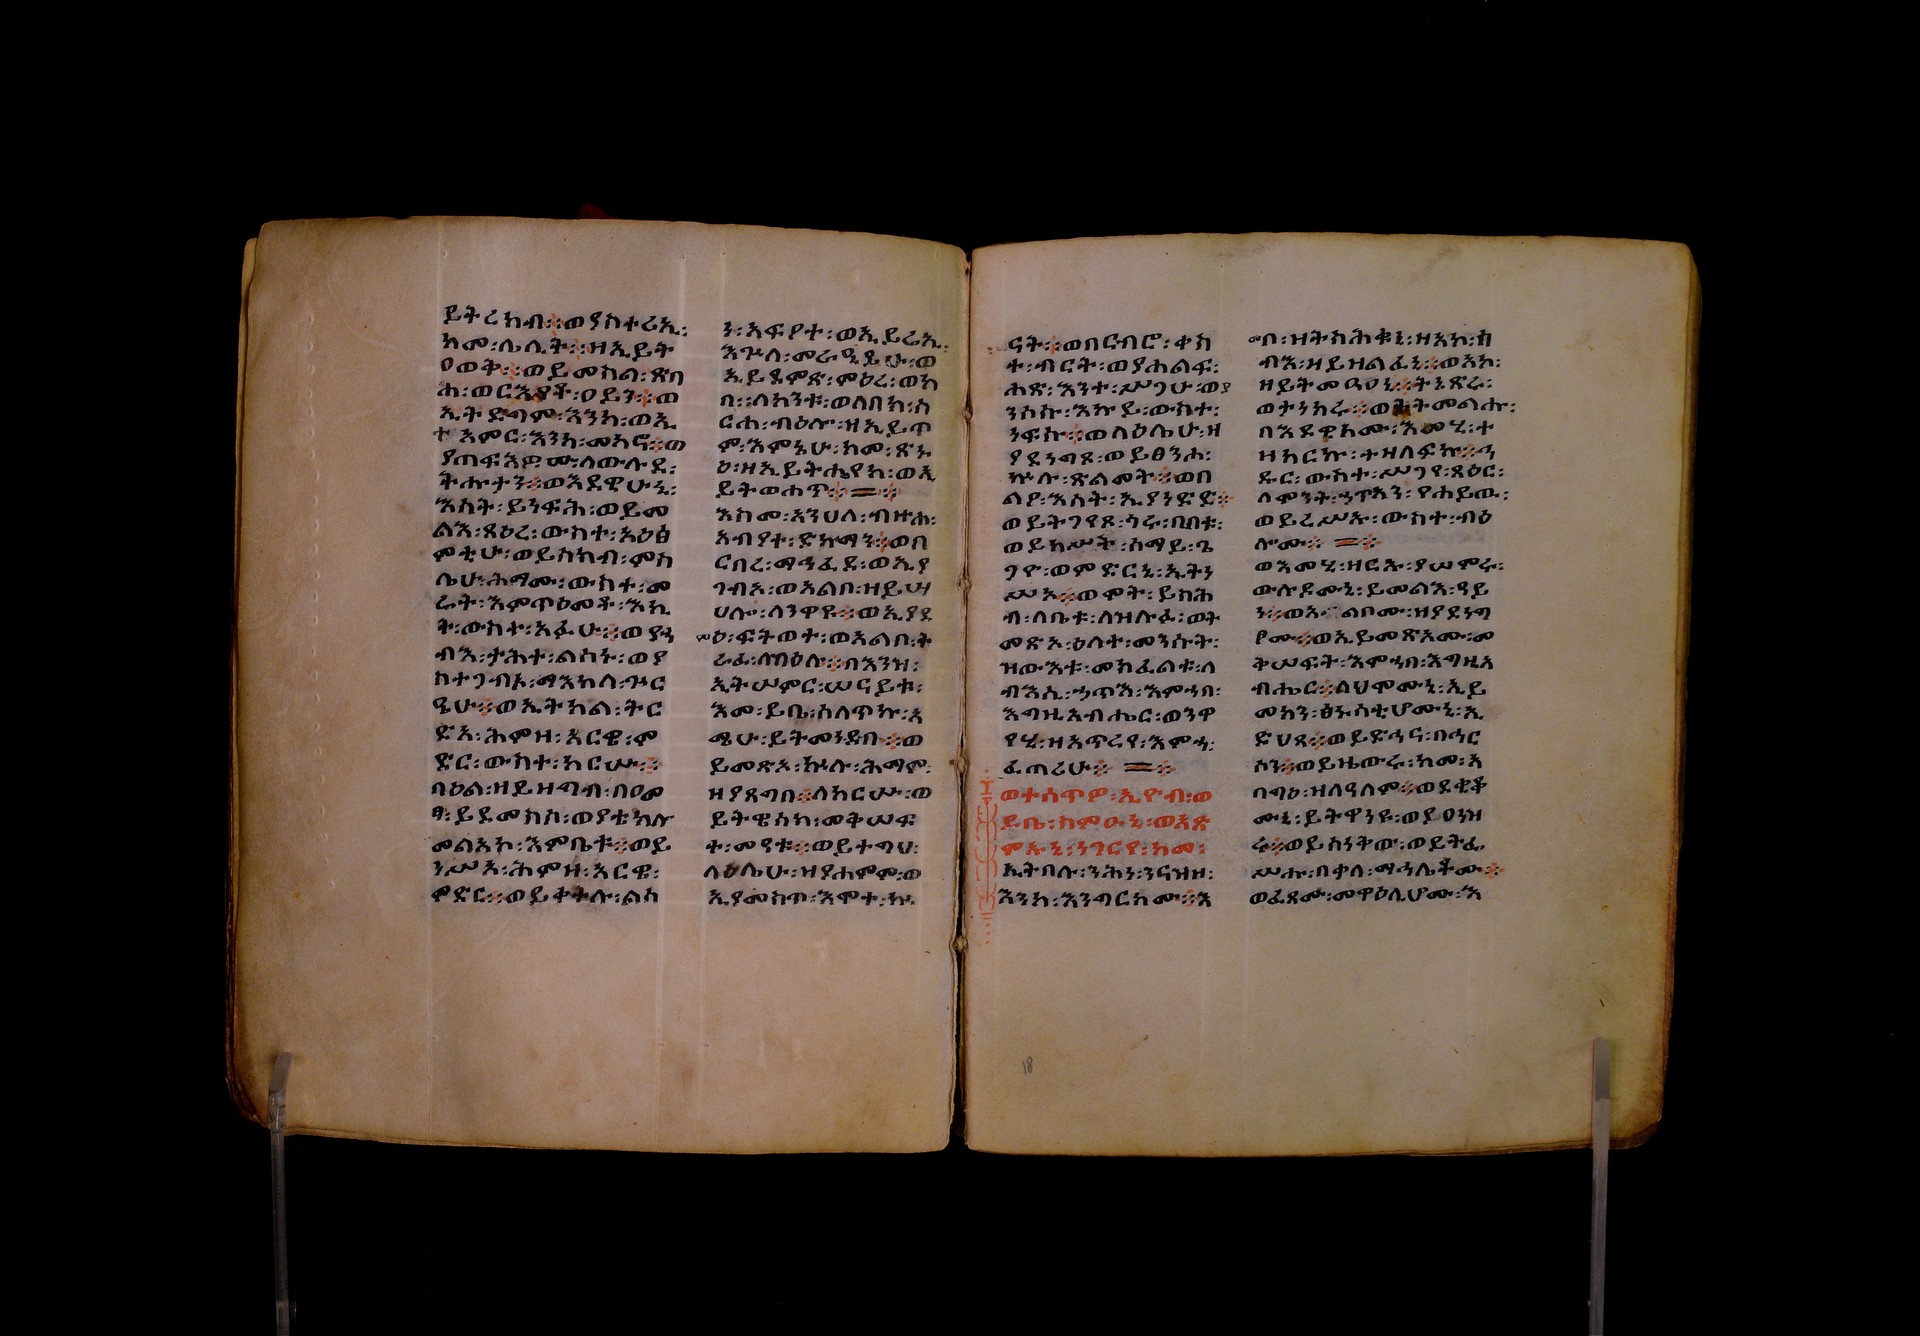 ይትረከብ፡፡ወያስተሬኢ፡
ከመ፡ሌሊት፡፡ዘኢይት
ዐወቅ፡፡ወይመስል፡ጽበ
ሐ፡ወርእየት፡ዐይን፡፡ወ
ኢትደግም፡እንከ፡ወኢ
ተአምር፡እንከ፡መካኖ፡፡ወ
ያጠፍእዎሙ፡ለውሉደ፡
ትሑታን፡፡ወእደዊሁኒ፡
እሳት፡ይነፍሕ፡ወይመ
ልእ፡ጸዕረ፡ውስተ፡አዕፅ
ምቲሁ፡ወይሰክብ፡ምስ
ሌሁ፡ሕማሙ፡ውስተ፡መ
ሬት፡እምጥዕመቶ፡እኪ
ት፡ውስተ፡አፉሁ፡፡ወያኃ
ብእ፡ታሕተ፡ልሳኑ፡ወያ
ስተጋብኦ፡ማእከለ፡ጕር
ዔሁ፡፡ወኢትክል፡ትር
ድኦ፡ሕምዘ፡አርዌ፡ም
ድር፡ውስተ፡ከርሡ፡፡
በዕል፡ዘይዘግብ፡በዐመ
ፃ፡ይደመሰስ፡ወያቴክሉ
መልአኮ፡እምቤቱ፡፡ወይ
ንሥእ፡ሕምዘ፡አርዌ፡
ምድር፡፡ወይቀትሉ፡ልሳ
ን፡አፍዖተ፡ወኢይሬኢ፡
እጕለ፡መራዒይሁ፡ወ
ኢይጼምጽ፡ምዕረ፡ወከ
በ፡፡ለከንቱ፡ወለበከ፡ሰ
ርሐ፡ብዕሎ፡ዘኢይጥ
ም፡እምኔሁ፡ከመ፡ጽኑ
ዕ፡ዘኢይትሔየክ፡ወኢ
ይትወሐጥ፡፡=፡፡
እስመ፡አንህለ፡ብዙሐ፡
አብያተ፡ድኩማን፡፡ወበ
ርበረ፡ማኅፈደ፡ወኢያ
ገብአ፡ወአልቦ፡ዘይሣ
ሀሎ፡ለንዋዩ፡፡ወኢያደ
ዕ፡ፍትወተ፡ወአልቦ፡ት
ራፈ፡ለበዕሉ፡፡በእንዝ፡
ኢትሠምር፡ሠናይቱ፡
እመ፡ይቤ፡ሰለጥኩ፡አ
ሜሁ፡ይትመነደብ፡፡ወ
ይመጽኦ፡ኵሉ፡ሕማም፡
ዘያጸግቦ፡፡ለከርሡ፡ወ
ይትዌሰክ፡መቅሠፍ
ተ፡መዓቱ፡፡ወይተግህ፡
ላዕሌሁ፡ዘያሐምም፡ወ
ኢያመስጥ፡እሞተ፡ኲ
ናት፡፡ወበርብሮ፡ቀስ
ተ፡ብርት፡ወያሐልፍ፡
ሕጽ፡እንተ፡ሥጋሁ፡ወያ
ንሰኩ፡እኩይ፡ውስተ፡
ንፍኩ፡፡ወላዕሌሁ፡ዘ
ያደነግጽ፡ወይፀንሐ፡
ኵሉ፡ጽልመት፡፡ወበ
ልዖ፡እሳት፡ኢያነድድ፡፡
ወይትጋየጾ፡ነሩ፡በቤቱ፡
ወይከሥት፡ሰማይ፡ጌ
ጋዮ፡ወምድርኒ፡ኢትነ
ሥኦ፡፡ወሞት፡ይስሕ
ብ፡ለቤቱ፡ለዝሉፉ፡ወት
መጽኦ፡ዕለተ፡መንሱት፡
ዝውእቱ፡መክፈልቱ፡ለ
ብእሲ፡ኃጥእ፡እምኀበ፡
እግዚአብሔር፡ወንዋ
የሂ፡ዘአጥረየ፡እምኀ፡
ፈጠሪሁ፡፡=፡፡
ወተሰጥዎ፡ኢዮብ፡ወ
ይቤ፡ስምዑኒ፡ወአጽ
ምኡኒ፡ነገርየ፡ከመ፡
ኢትበሉ፡ንሕነ፡ነናዝዝ፡
እንከ፡እንግርክሙ፡፡እ
መቦ፡ዝትስሕቁኒ፡ዘእኩ፡ሰ
ብእ፡ዘይዘልፈኒ፡፡ወእኮ፡
ዘይትመዐዐኒ፡፡ትኔጽሩ፡
ወታነክሩ፡፡ወትትመልሑ፡
በእደዊክሙ፡እመሂ፡ተ
ዘከርኩ፡ተዘለፍኩ፡፡ኃ
ዱር፡ውስተ፡ሥጋየ፡ጸዕር፡
ለምንት፡ኃጥአን፡የሐይዉ፡
ወይረሥኡ፡ውስተ፡ብዕ
ሎሙ፡፡=፡፡
ወእመሂ፡ዘርኡ፡ያሠምሩ፡
ውሉዶሙኒ፡ይመልእ፡ዓይ
ን፡፡ወአልቦሙ፡ዘያደነግ
ፆሙ፡፡ወኢይመጽአሙ፡መ
ቅሠፍት፡እምኀበ፡እግዚአ
ብሔር፡፡ላህሞሙኒ፡ኢይ
መክን፡ፅኑሳቲሆሙኒ፡ኢ
ድህጸ፡፡ወይድኅና፡በኀር
ስን፡፡ወይዜውሩ፡ከመ፡አ
በግዕ፡ዘለዓለም፡፡ወደቂቅ
ሙኒ፡ይትዋነዩ፡ወያዐንዝ
ሩ፡፡ወይሰነትው፡ወይትፌ
ሥሑ፡በቀለ፡ማኅሌቶሙ፡፡
ወፈጸሙ፡መዋዕሊሆሙ፡እ
18